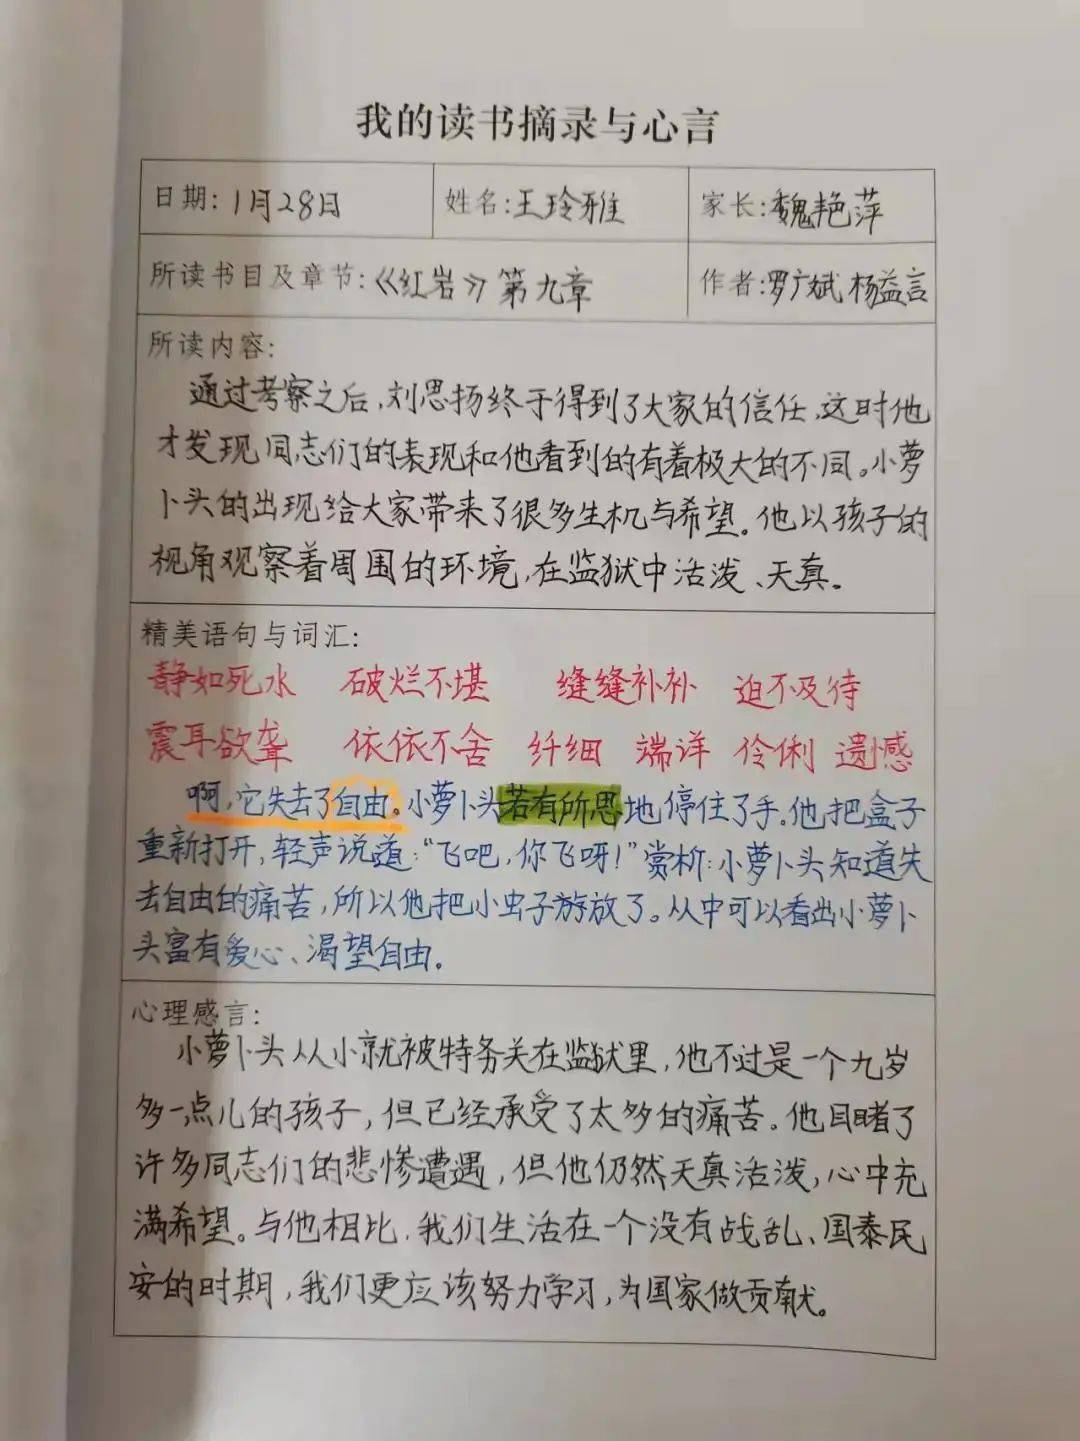 我的读书摘录与心言
日期:1月28日 姓名:王玲雅 家长:魏艳萍
所读书目及章节:《红岩》第九章 作者:罗广斌 杨益言
所读内容:
通过考察之后,刘思扬终于得到了大家的信任,这时他
才发现同志们的表现和他看到的有着极大的不同。小萝
卜头的出现给大家带来了很多生机与希望。他以孩子的
视角观察着周围的环境,在监狱中活泼、天真。
精美语句与词汇:
静如死水 破烂不堪 缝缝补补 迫不及待
震耳欲聋 依依不舍 纤细 端详 伶俐 遗憾
啊,它失去了自由。小萝卜头若有所思地停住了手。他把盒子
重新打开,轻声说道:“飞吧,你飞呀!”赏析:小萝卜头知道失
去自由的痛苦,所以他把小虫子游放了。从中可以看出小萝卜
头富有爱心、渴望自由.
心理感言:
小萝卜头从小就被特务关在监狱里,他不过是一个九岁
多一点儿的孩子,但已经承受了太多的痛苦。他目睹了
许多同志们的悲惨遭遇,但他仍然天真活泼,心中充
满希望。与他相比,我们生活在一个没有战乱、国泰民
安的时期,我们更应该努力学习,为国家做贡献。